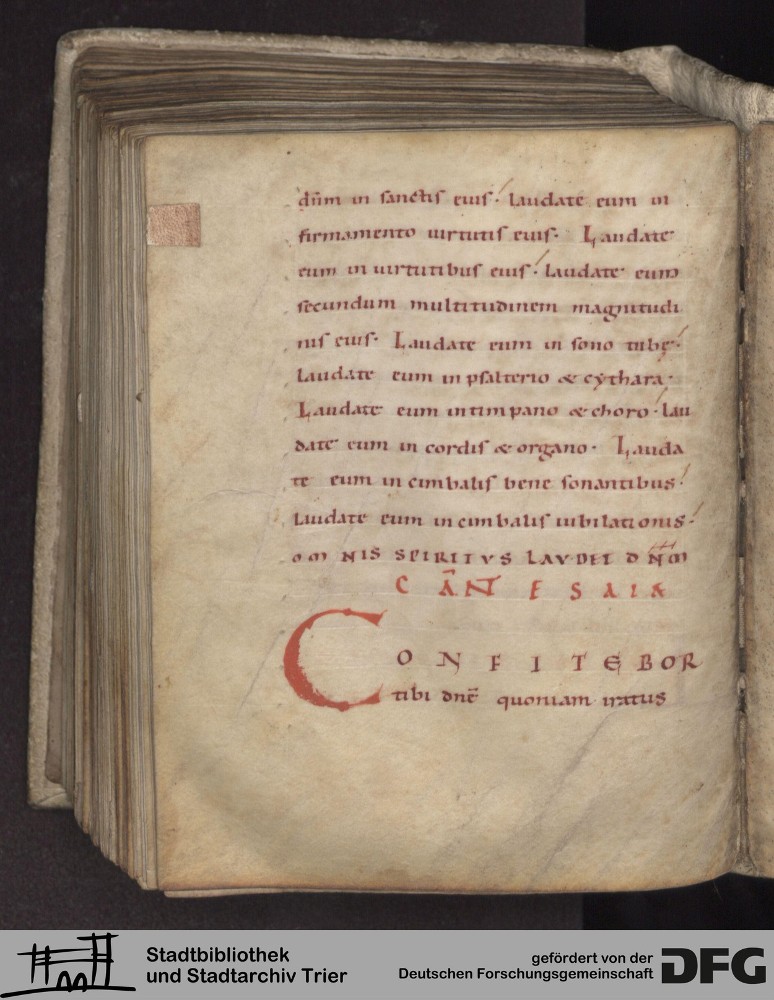 dn̄m in sanctis eius· laudate eum in
firmamento uirtutis eius· Laudate
eum in uirtutibus eius· laudate eum
secundum multitudinem magnitudi
nis eius· Laudate eum in sono tubę·
laudate eum in psalterio & cythara·
Laudate eum in timpano & choro· lau
date eum in cordis & organo· Lauda
te eum in cimbalis bene sonantibus·
laudate eum in cimbalis iubilationis·
OMNIS SPIRITVS LAVDET DN̄M
CAN̄T ESAIA
CONFITEBOR
tibi dnē quoniam iratus
Stadtbibliothek
und Stadtarchiv Trier
gefördert von der
Deutschen Forschungsgemeinschaft
DFG